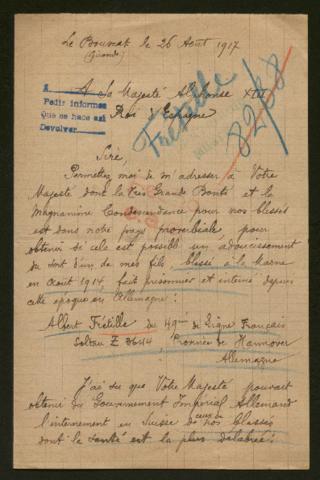 Le Bouscat le 26 Août 1917
(Gironde)
A
Pedir informes
Que se hace así
Devolver
A Sa Majesté Alphonse XIII
Roi d'Espagne
Frétille
8288
Sire,
Permettez moi de m'adresser à Votre
Majesté dont la très Grande Bonté et la
magnanime Condescendance pour nos blessés
est dans notre pays proverbiale pour
obtenir si cela est possible un adoucissement
du sort d'un de mes fils, blessé à la Marne
en Août 1914, fait prisonnier et interné depuis
cette époque en Allemagne:
Albert Frétille du 49me de Ligne Français
Soltau Z 3644, Province de Hannover
Allemagne
J'ai su que Votre Majesté pouvait
obtenir du Gouvernement Impérial Allemand
l'internement en Suisse de ceux de nos blessés
dont la santé est la plus délabrée: